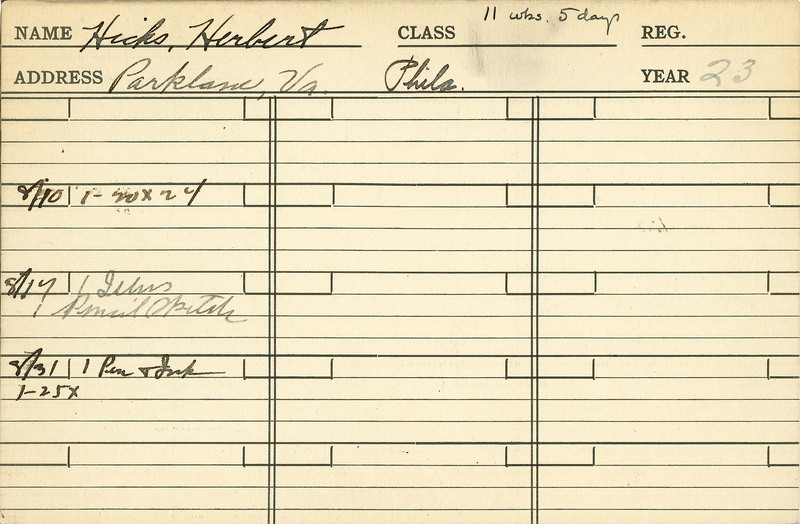 11 wks. 5 days
NAME Hicks, Herbert CLASS REG.
ADDRESS Parklane, Va. Phila. YEAR 23
8/10 1-20x24
8/17 1 Illus
1 Pencil Sketch
8/31 1 Pen & Ink
1-25x